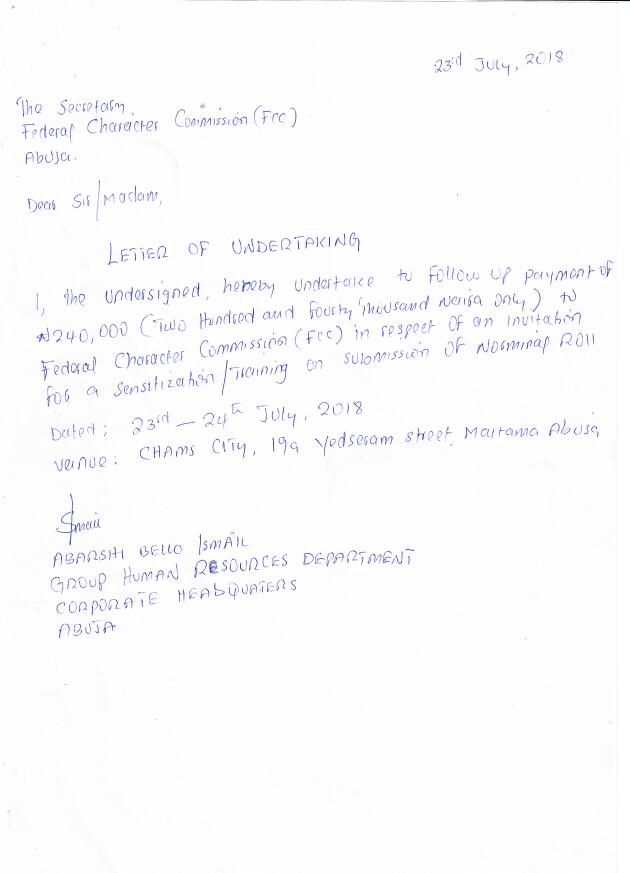 23rd July, 2018
The Secretary,
Federal Character Commission (FCC)
Abuja.
Dear Sir/Madam,
LETTER OF UNDERTAKING
I, the undersigned, hereby undertake to follow up payment of
₦240,000 (Two Hundred and fourty Thousand Neira only) to
Federal Character Commission (FCC) in respect of an invitation
for a sensitization/Training on submission of Norminal Roll
Dated: 23rd — 24th July, 2018
venue: CHAMS CITY, 19a Yedseram street, Maitama Abuja
Smail
ABARSHI BELLO ISMAIL
GROUP HUMAN RESOURCES DEPARTMENT
CORPORATE HEADQUATERS
ABUJA